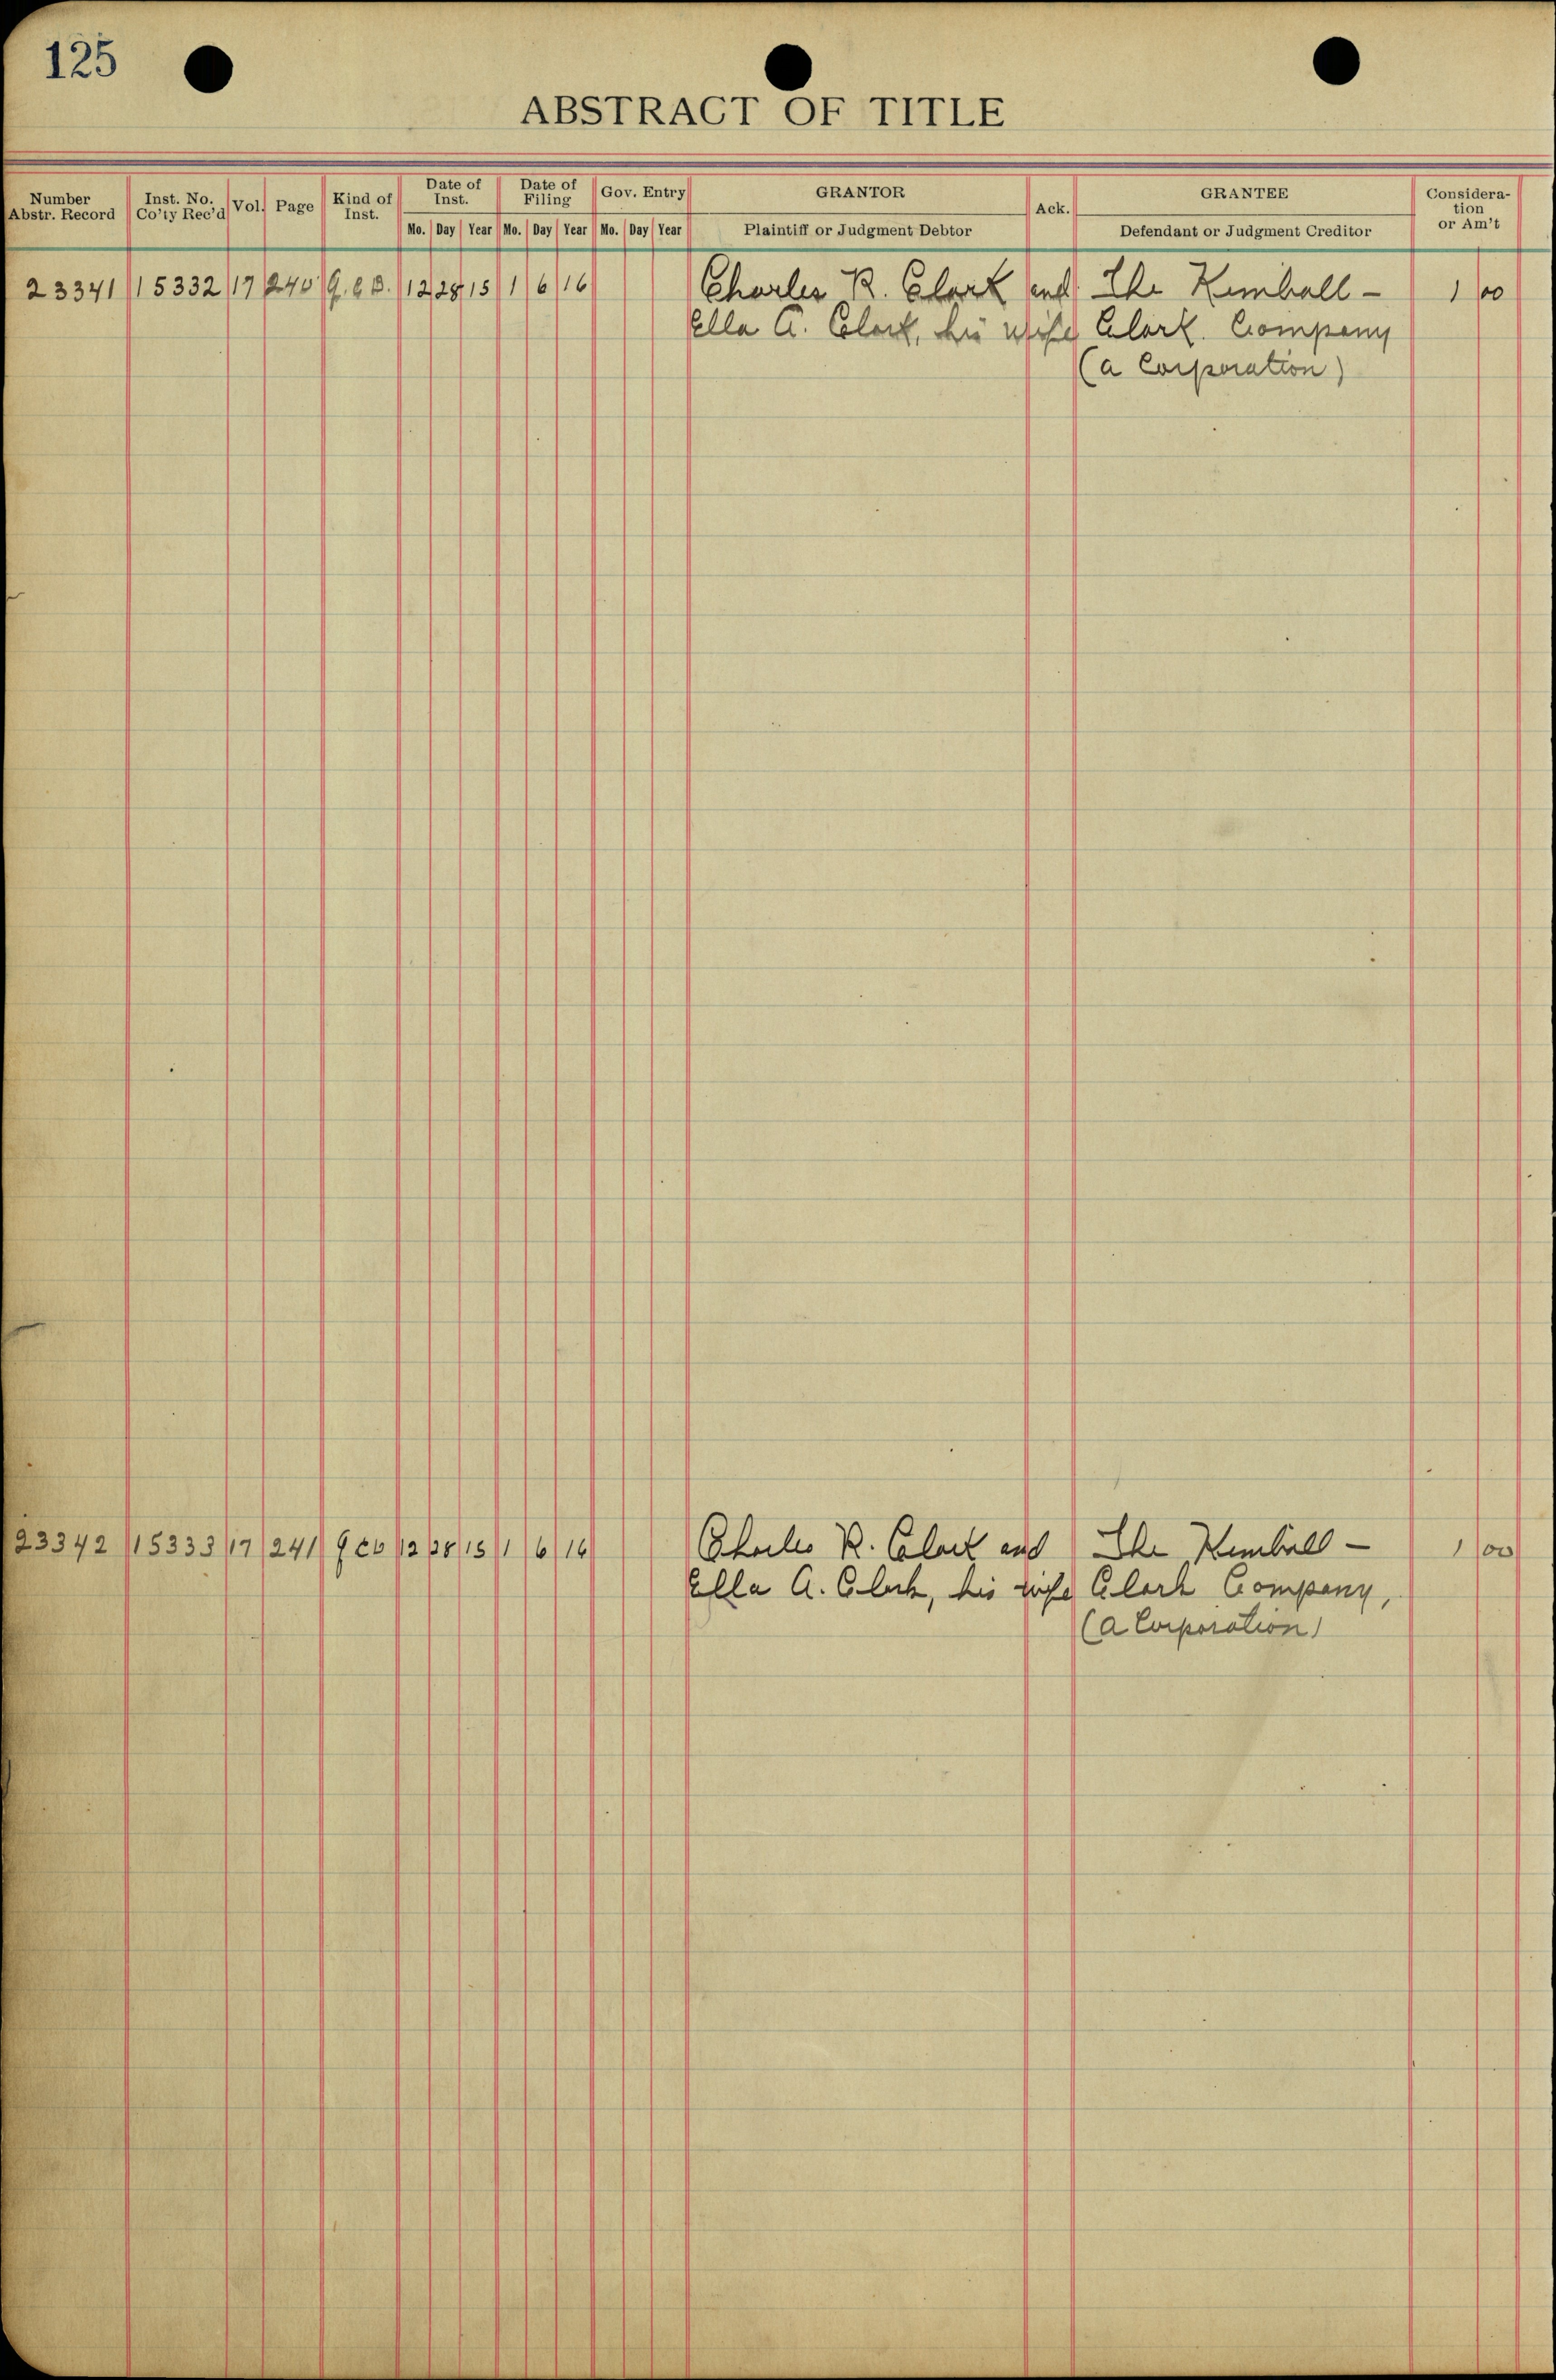 125
ABSTRACT OF TITLE
Number Abstr. Record Inst. No. Co'ty Rec'd Vol. Page Kind of Inst. Date of Inst. Date of Filing Gov. Entry GRANTOR Ack. GRANTEE Consideration or Am't
Mo. Day Year Mo. Day Year Mo. Day Year Plaintiff or Judgment Debtor Defendant or Judgment Creditor
23341 15332 17 240 12 28 15 1 6 16 Charles R. Clark and The Kimball - 1 00
Ella A. Clark, his wife Clark Company
(a Corporation)
23342 15333 17 241 12 28 15 1 6 16 Charles R. Clark and The Kimball - 1 00
Ella A. Clark, his wife Clark Company,
(a Corporation)